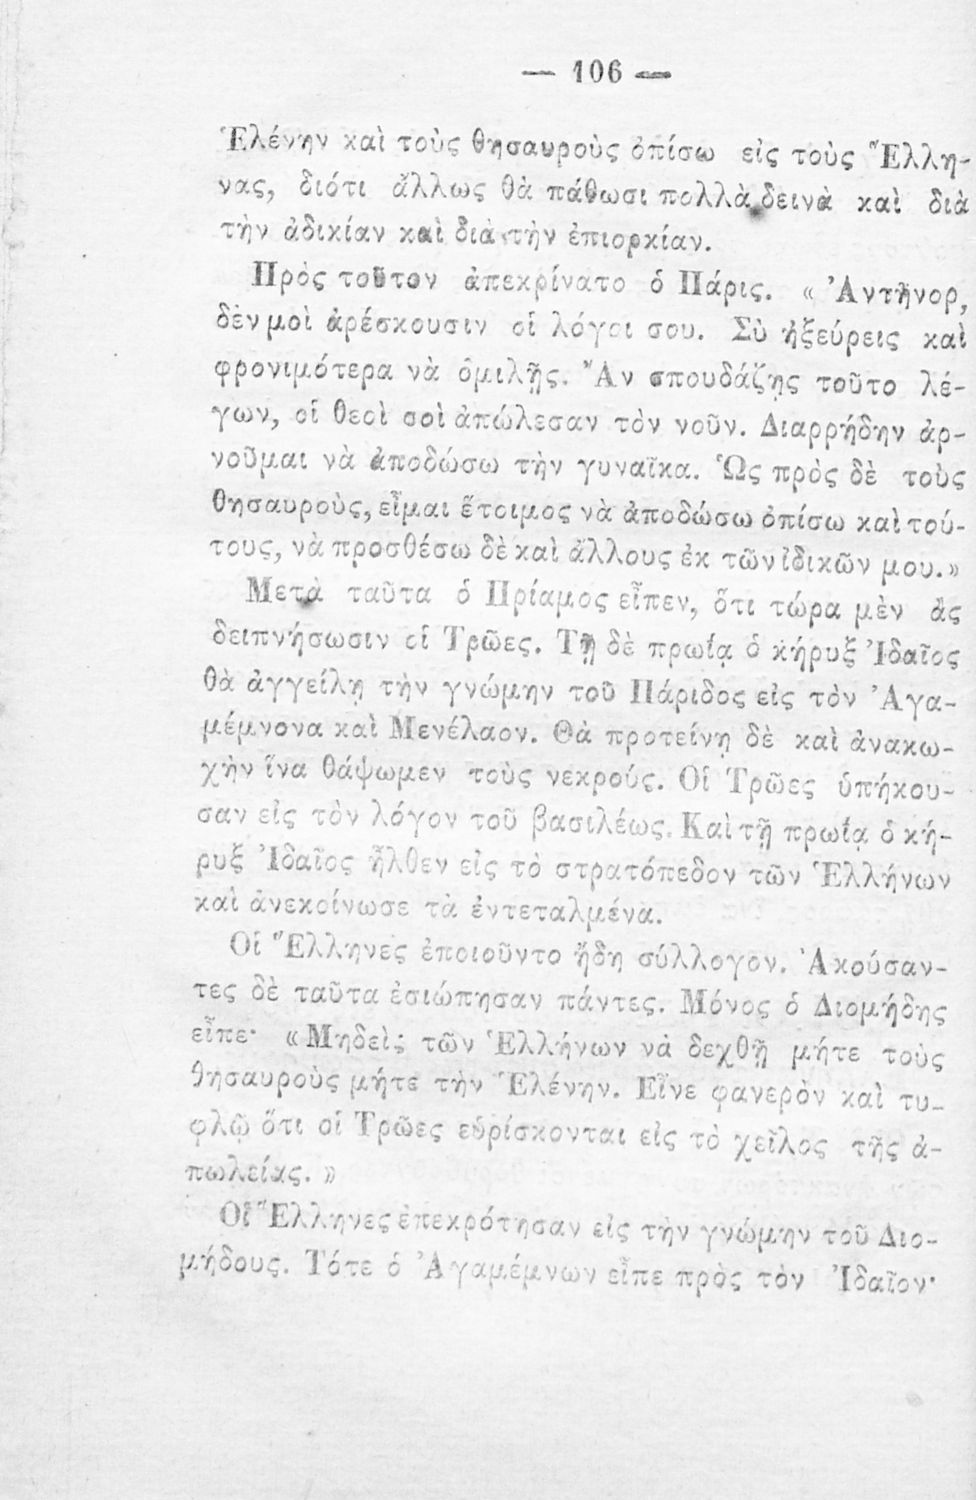 — 106 —
Ἑλένην καὶ τοὺς θησαυροὺς ὀπίσω εἰς τοὺς Ἕλλη-
νας, διότι ἄλλως θὰ πάθωσι πολλὰ δεινὰ καὶ διὰ
τὴν ἀδικίαν καὶ διὰ τὴν ἐπιορκίαν.
Πρὸς τοῦτον ἀπεκρίνατο ὁ Πάρις. « Ἀντῆνορ,
δὲν μοὶ ἀρέσκουσιν οἱ λόγοι σου. Σὺ ἠξεύρεις καὶ
φρονιμότερα νὰ ὁμιλῇς. Ἂν σπουδάζῃς τοῦτο λέ-
γων, οἱ θεοὶ σοὶ ἀπώλεσαν τὸν νοῦν. Διαρρήδην ἀρ-
νοῦμαι νὰ ἀποδώσω τὴν γυναῖκα. Ὡς πρὸς δὲ τοὺς
θησαυροὺς, εἶμαι ἕτοιμος νὰ ἀποδώσω ὀπίσω καὶ τού-
τους, νὰ προσθέσω δὲ καὶ ἄλλους ἐκ τῶν ἰδικῶν μου.»
Μετὰ ταῦτα ὁ Πρίαμος εἶπεν, ὅτι τώρα μὲν ἂς
δειπνήσωσιν οἱ Τρῶες. Τῇ δὲ πρωΐᾳ ὁ κήρυξ Ἰδαῖος
θὰ ἀγγείλῃ τὴν γνώμην τοῦ Πάριδος εἰς τὸν Ἀγα-
μέμνονα καὶ Μενέλαον. Θὰ προτείνῃ δὲ καὶ ἀνακω-
χὴν ἵνα θάψωμεν τοὺς νεκρούς. Οἱ Τρῶες ὑπήκου-
σαν εἰς τὸν λόγον τοῦ βασιλέως. Καὶ τῇ πρωΐᾳ ὁ κή-
ρυξ Ἰδαῖος ἦλθεν εἰς τὸ στρατόπεδον τῶν Ἑλλήνων
καὶ ἀνεκοίνωσε τὰ ἐντεταλμένα.
Οἱ Ἕλληνες ἐποιοῦντο ἤδη σύλλογον. Ἀκούσαν-
τες δὲ ταῦτα ἐσιώπησαν πάντες. Μόνος ὁ Διομήδης
εἶπε· «Μηδεὶς τῶν Ἑλλήνων νὰ δεχθῇ μήτε τοὺς
θησαυροὺς μήτε τὴν Ἑλένην. Εἶνε φανερὸν καὶ τυ-
φλῷ ὅτι οἱ Τρῶες εὑρίσκονται εἰς τὸ χεῖλος τῆς ἀ-
πωλείας. »
Οἱ Ἕλληνες ἐπεκρότησαν εἰς τὴν γνώμην τοῦ Διο-
μήδους. Τότε ὁ Ἀγαμέμνων εἶπε πρὸς τὸν Ἰδαῖον·